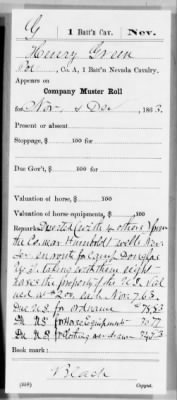 G | 1 Batt'n Cav. | Nev.
Henry Green
Pvt, Co. A, 1 Batt'n Nevada Cavalry.
Appears on
Company Muster Roll
for Nov. & Dec, 1863.
Present or absent
Stoppage, $ 100 for
Due Gov't, $ 100 for
Valuation of horse, $ 100
Valuation of horse equipments, $ 100
Remarks: Deserted (with 4 others) from
the Co. near Humboldt Wells Nev.
en route for Camp Douglas
U.T. taking with them eight
horses the property of the U.S. val
ued at each Nov 7, 63.
Due U.S. for ordnance $78.83
Do U.S. for Horse Equipments
Do U.S. for Clothing
Book mark:
Black
(358)
Copyist.